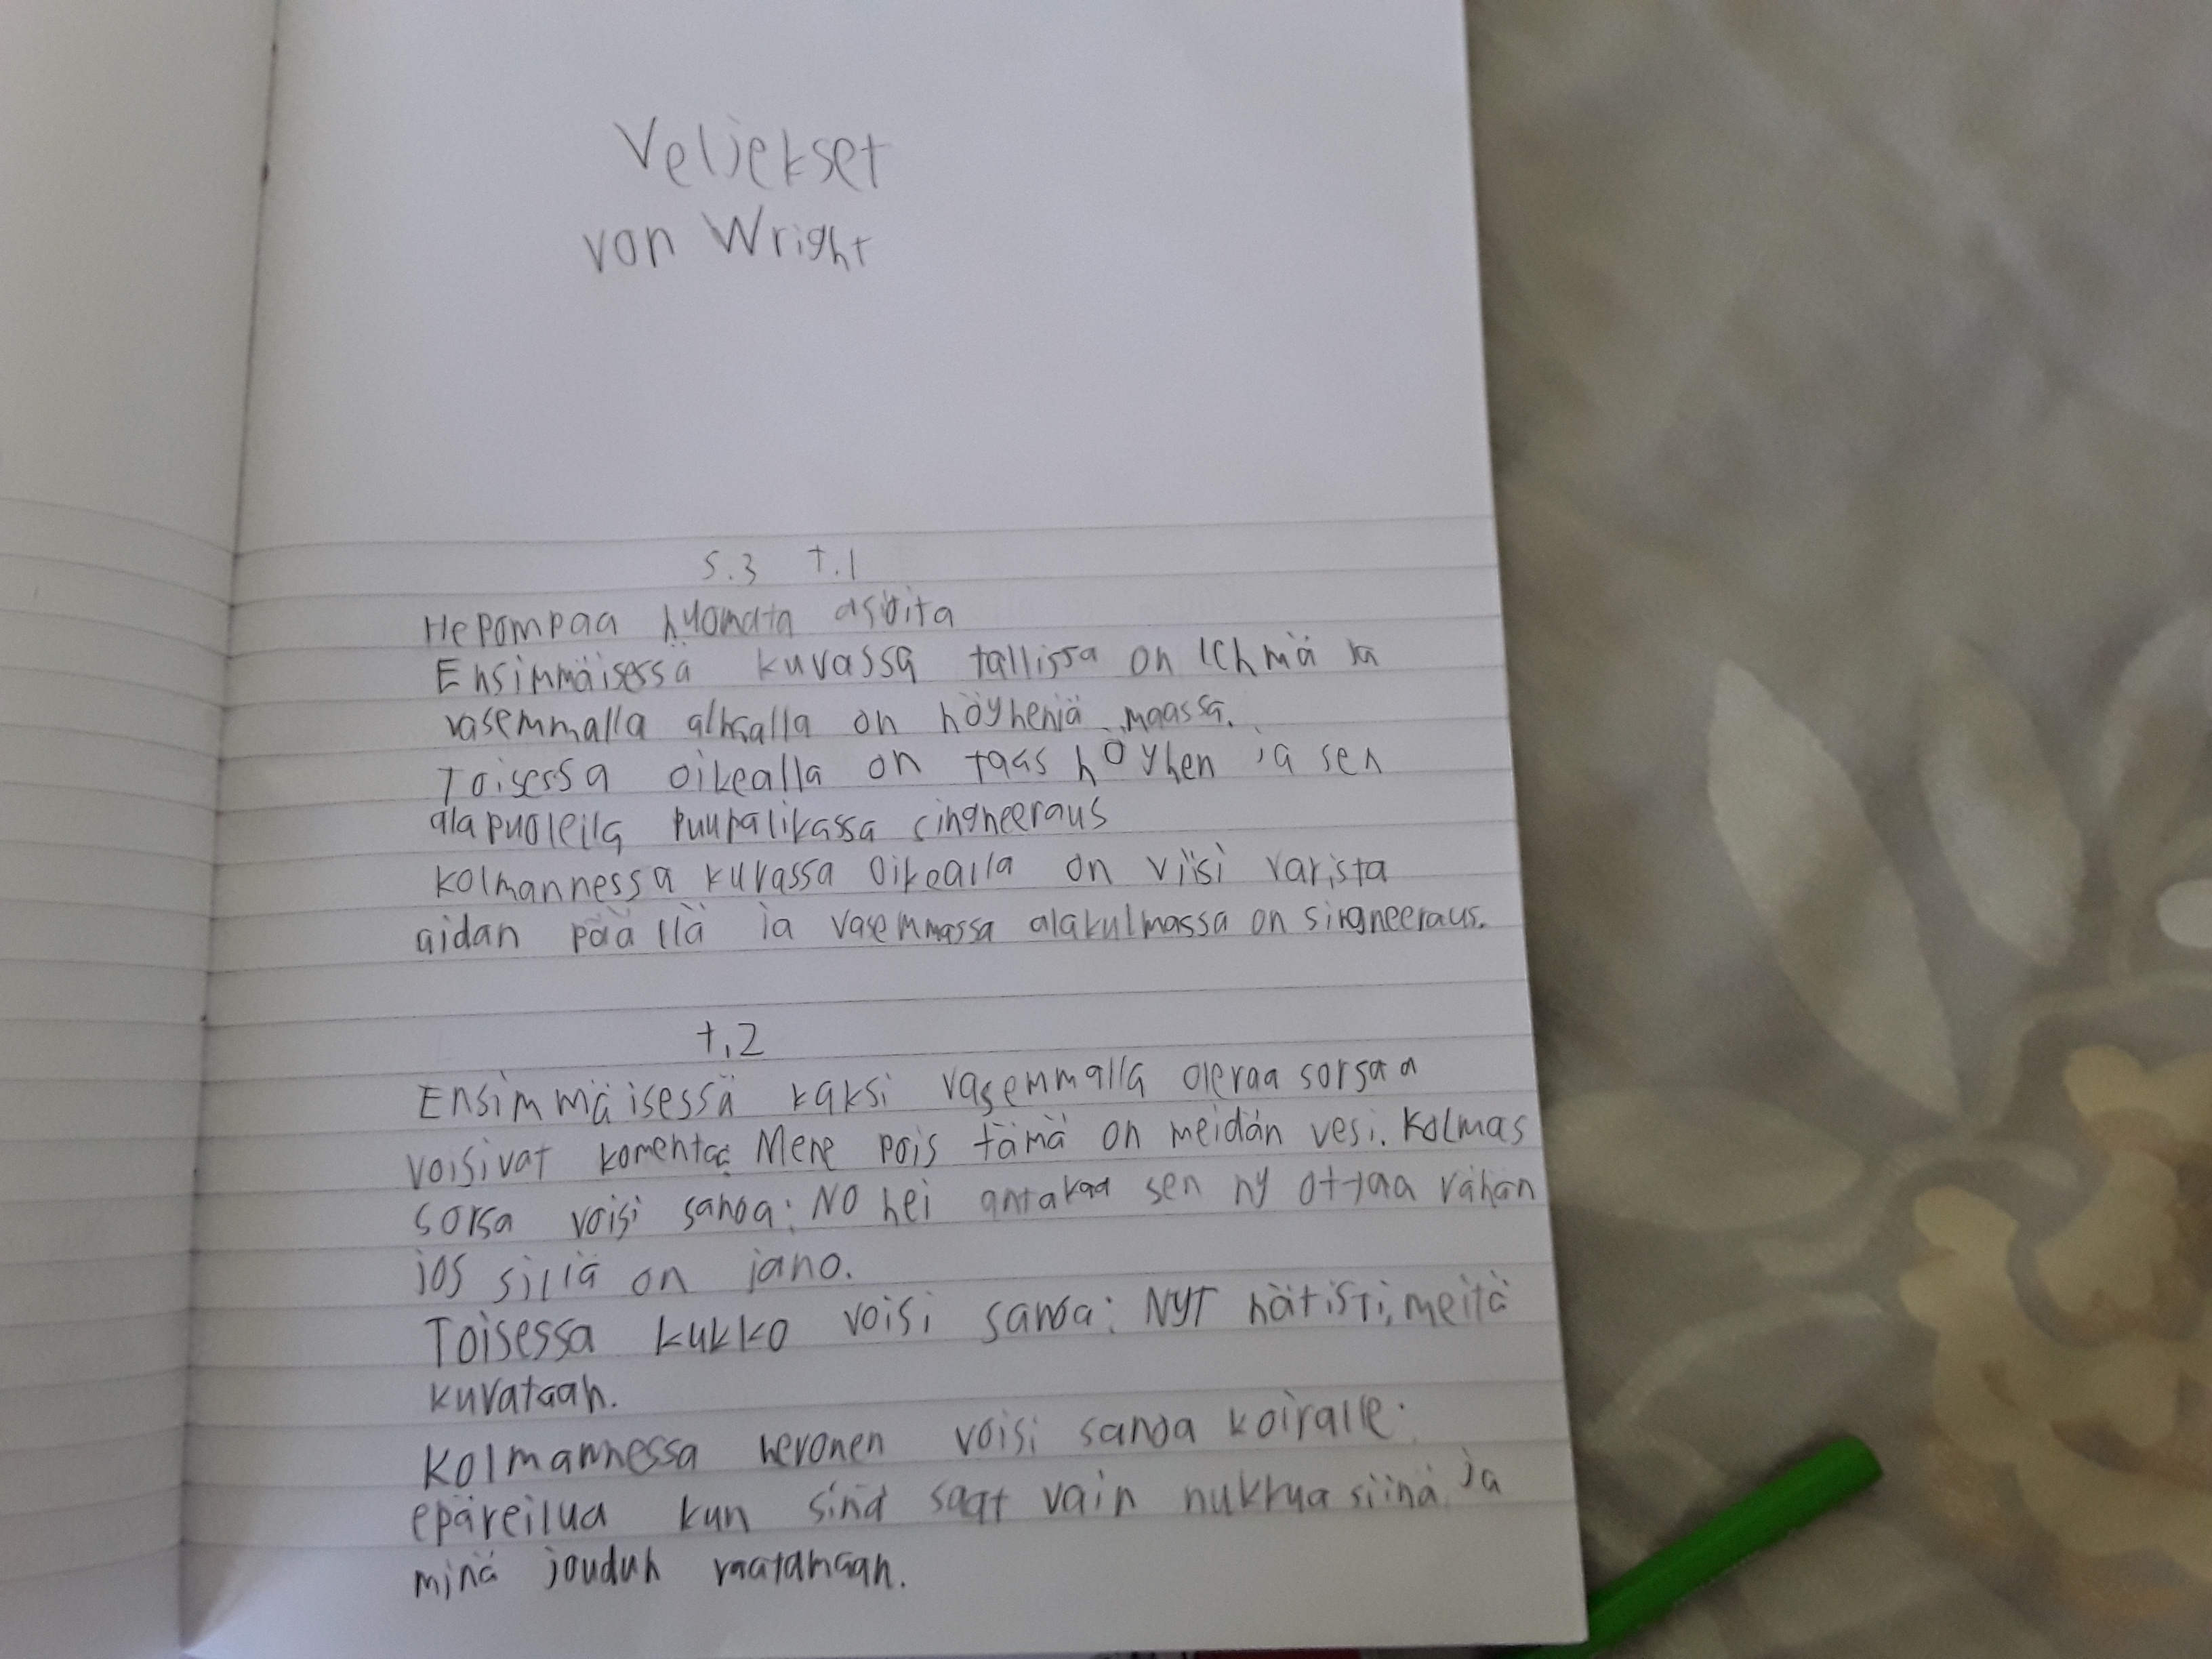 Veljekset
von Wright
s.3 t.1
Hepompaa huomata asioita
Ensimmäisessä kuvassa tallissa on lehmä ja
vasemmalla alhaalla on höyheniä maassa.
Toisessa oikealla on taas höyhen ja sen
alapuoleila puupalikassa singneeraus
kolmannessa kuvassa oikealla on viisi varista
aidan päällä ja vasemmassa alakulmassa on singneeraus.
t.2
Ensimmäisessä kaksi vasemmalla olevaa sorsaa
voisivat komentaa: Mene pois tämä on meidän vesi. Kolmas
sorsa voisi sanoa: NO hei antakaa sen ny ottaa vähän
jos sillä on jano.
Toisessa kukko voisi sanoa: NYT nätisti, meitä
kuvataan.
Kolmannessa hevonen voisi sanoa koiralle:
epäreilua kun sinä saat vain nukkua siinä ja
minä joudun raatamaan.